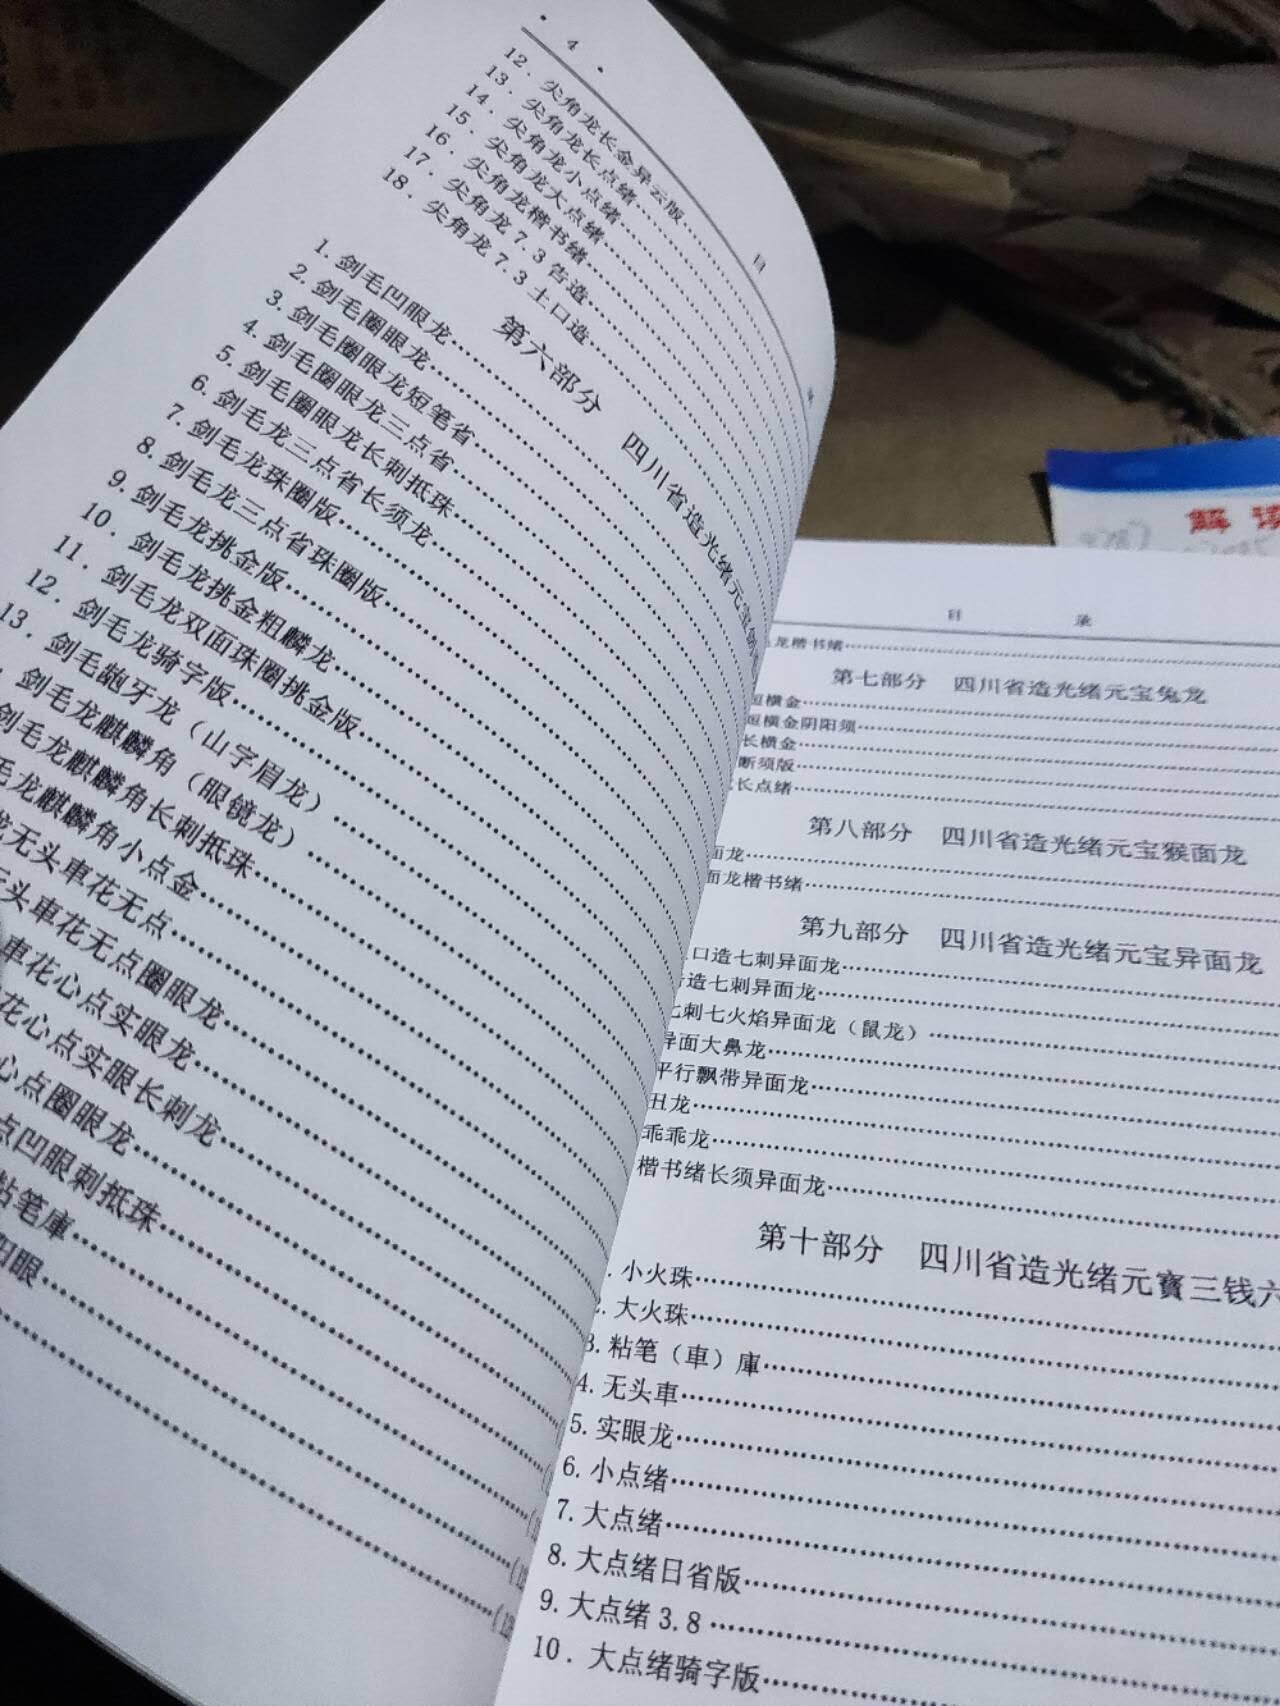 4
目
12. 尖角龙长金异云版
13. 尖角龙长点绪
14. 尖角龙小点绪
15. 尖角龙大点绪
16. 尖角龙楷书绪
17. 尖角龙7.3告造
18. 尖角龙7.3土口造
第六部分 四川省造光绪元宝剑
1. 剑毛凹眼龙
2. 剑毛圈眼龙
3. 剑毛圈眼龙短笔省
4. 剑毛圈眼龙三点省
5. 剑毛圈眼龙长刺抵珠
6. 剑毛龙三点省长须龙
7. 剑毛龙珠圈版
8. 剑毛龙三点省珠圈版
9. 剑毛龙挑金版
10. 剑毛龙挑金粗麟龙
11. 剑毛龙双面珠圈挑金版
12. 剑毛龙骑字版
13. 剑毛龅牙龙（山字眉龙）
剑毛龙麒麟角（眼镜龙）
剑毛龙麒麟角长刺抵珠
毛龙麒麟角小点金
龙无头車花无点
无头車花无点圈眼龙
車花心点实眼龙
花心点实眼长刺龙
心点圈眼龙
点凹眼刺抵珠
粘笔庫
阳眼
解读
目 录
龙楷书绪
第七部分 四川省造光绪元宝兔龙
短横金
短横金阴阳须
长横金
断须版
长点绪
第八部分 四川省造光绪元宝猴面龙
面龙
面龙楷书绪
第九部分 四川省造光绪元宝异面龙
口造七刺异面龙
告造七刺异面龙
七刺七火焰异面龙（鼠龙）
异面大鼻龙
平行飘带异面龙
丑龙
乖乖龙
楷书绪长须异面龙
第十部分 四川省造光绪元寳三钱六
. 小火珠
2. 大火珠
3. 粘笔（車）庫
4. 无头車
5. 实眼龙
6. 小点绪
7. 大点绪
8. 大点绪日省版
9. 大点绪3.8
10. 大点绪骑字版